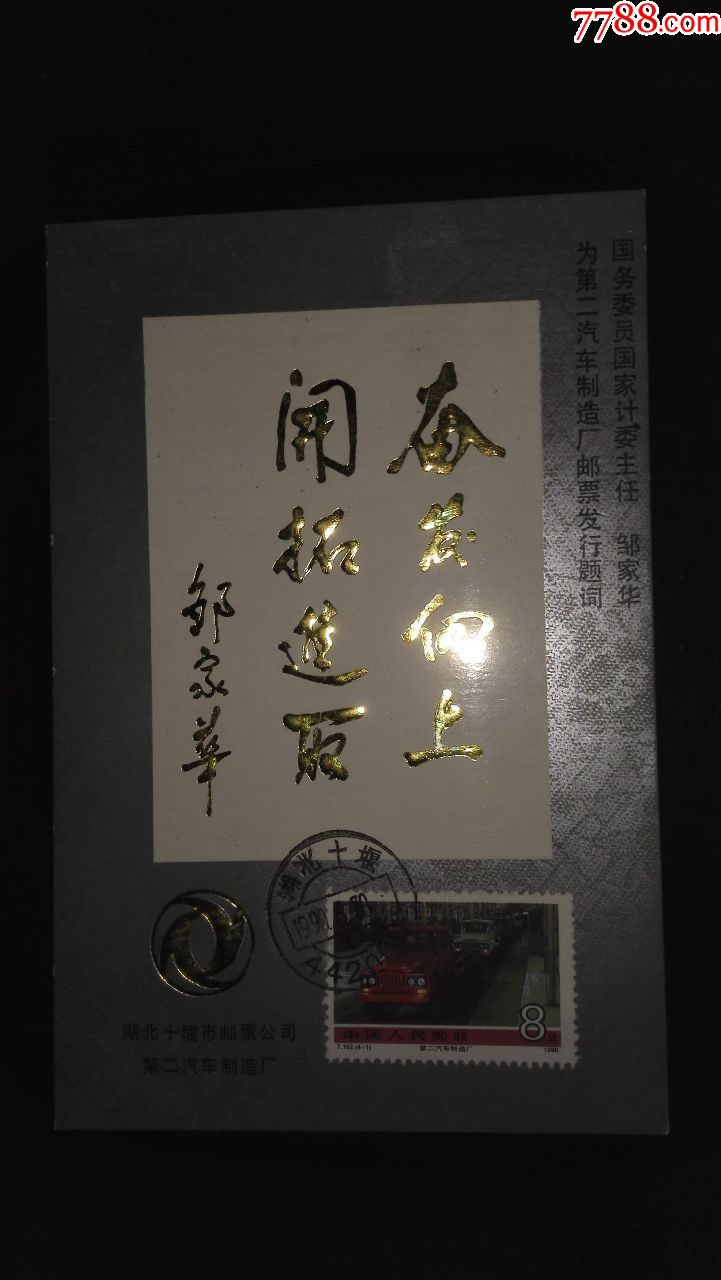 7788.com
国务委员国家计委主任 邹家华
为第二汽车制造厂邮票发行题词
奋发向上
开拓進取
邹家華
湖北十堰
1990.
4420
湖北十堰市邮票公司
第二汽车制造厂
8分
中国人民邮政
T.152.(4-1) 第二汽车制造厂 1990